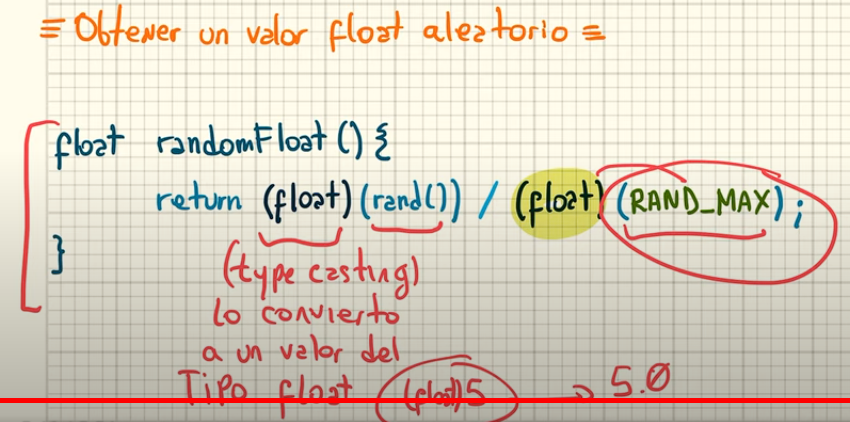 = Obtener un valor float aleatorio =
float randomFloat () {
return (float)(rand()) / (float)(RAND_MAX);
}
(type casting)
lo convierto
a un valor del
Tipo float (float)5 → 5.0